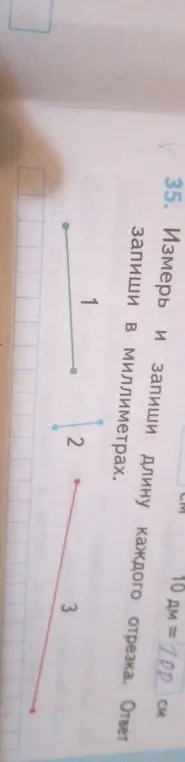 см
10 дм = 100 см
35. Измерь и запиши длину каждого отрезка. Ответ
запиши в миллиметрах.
1
2
3